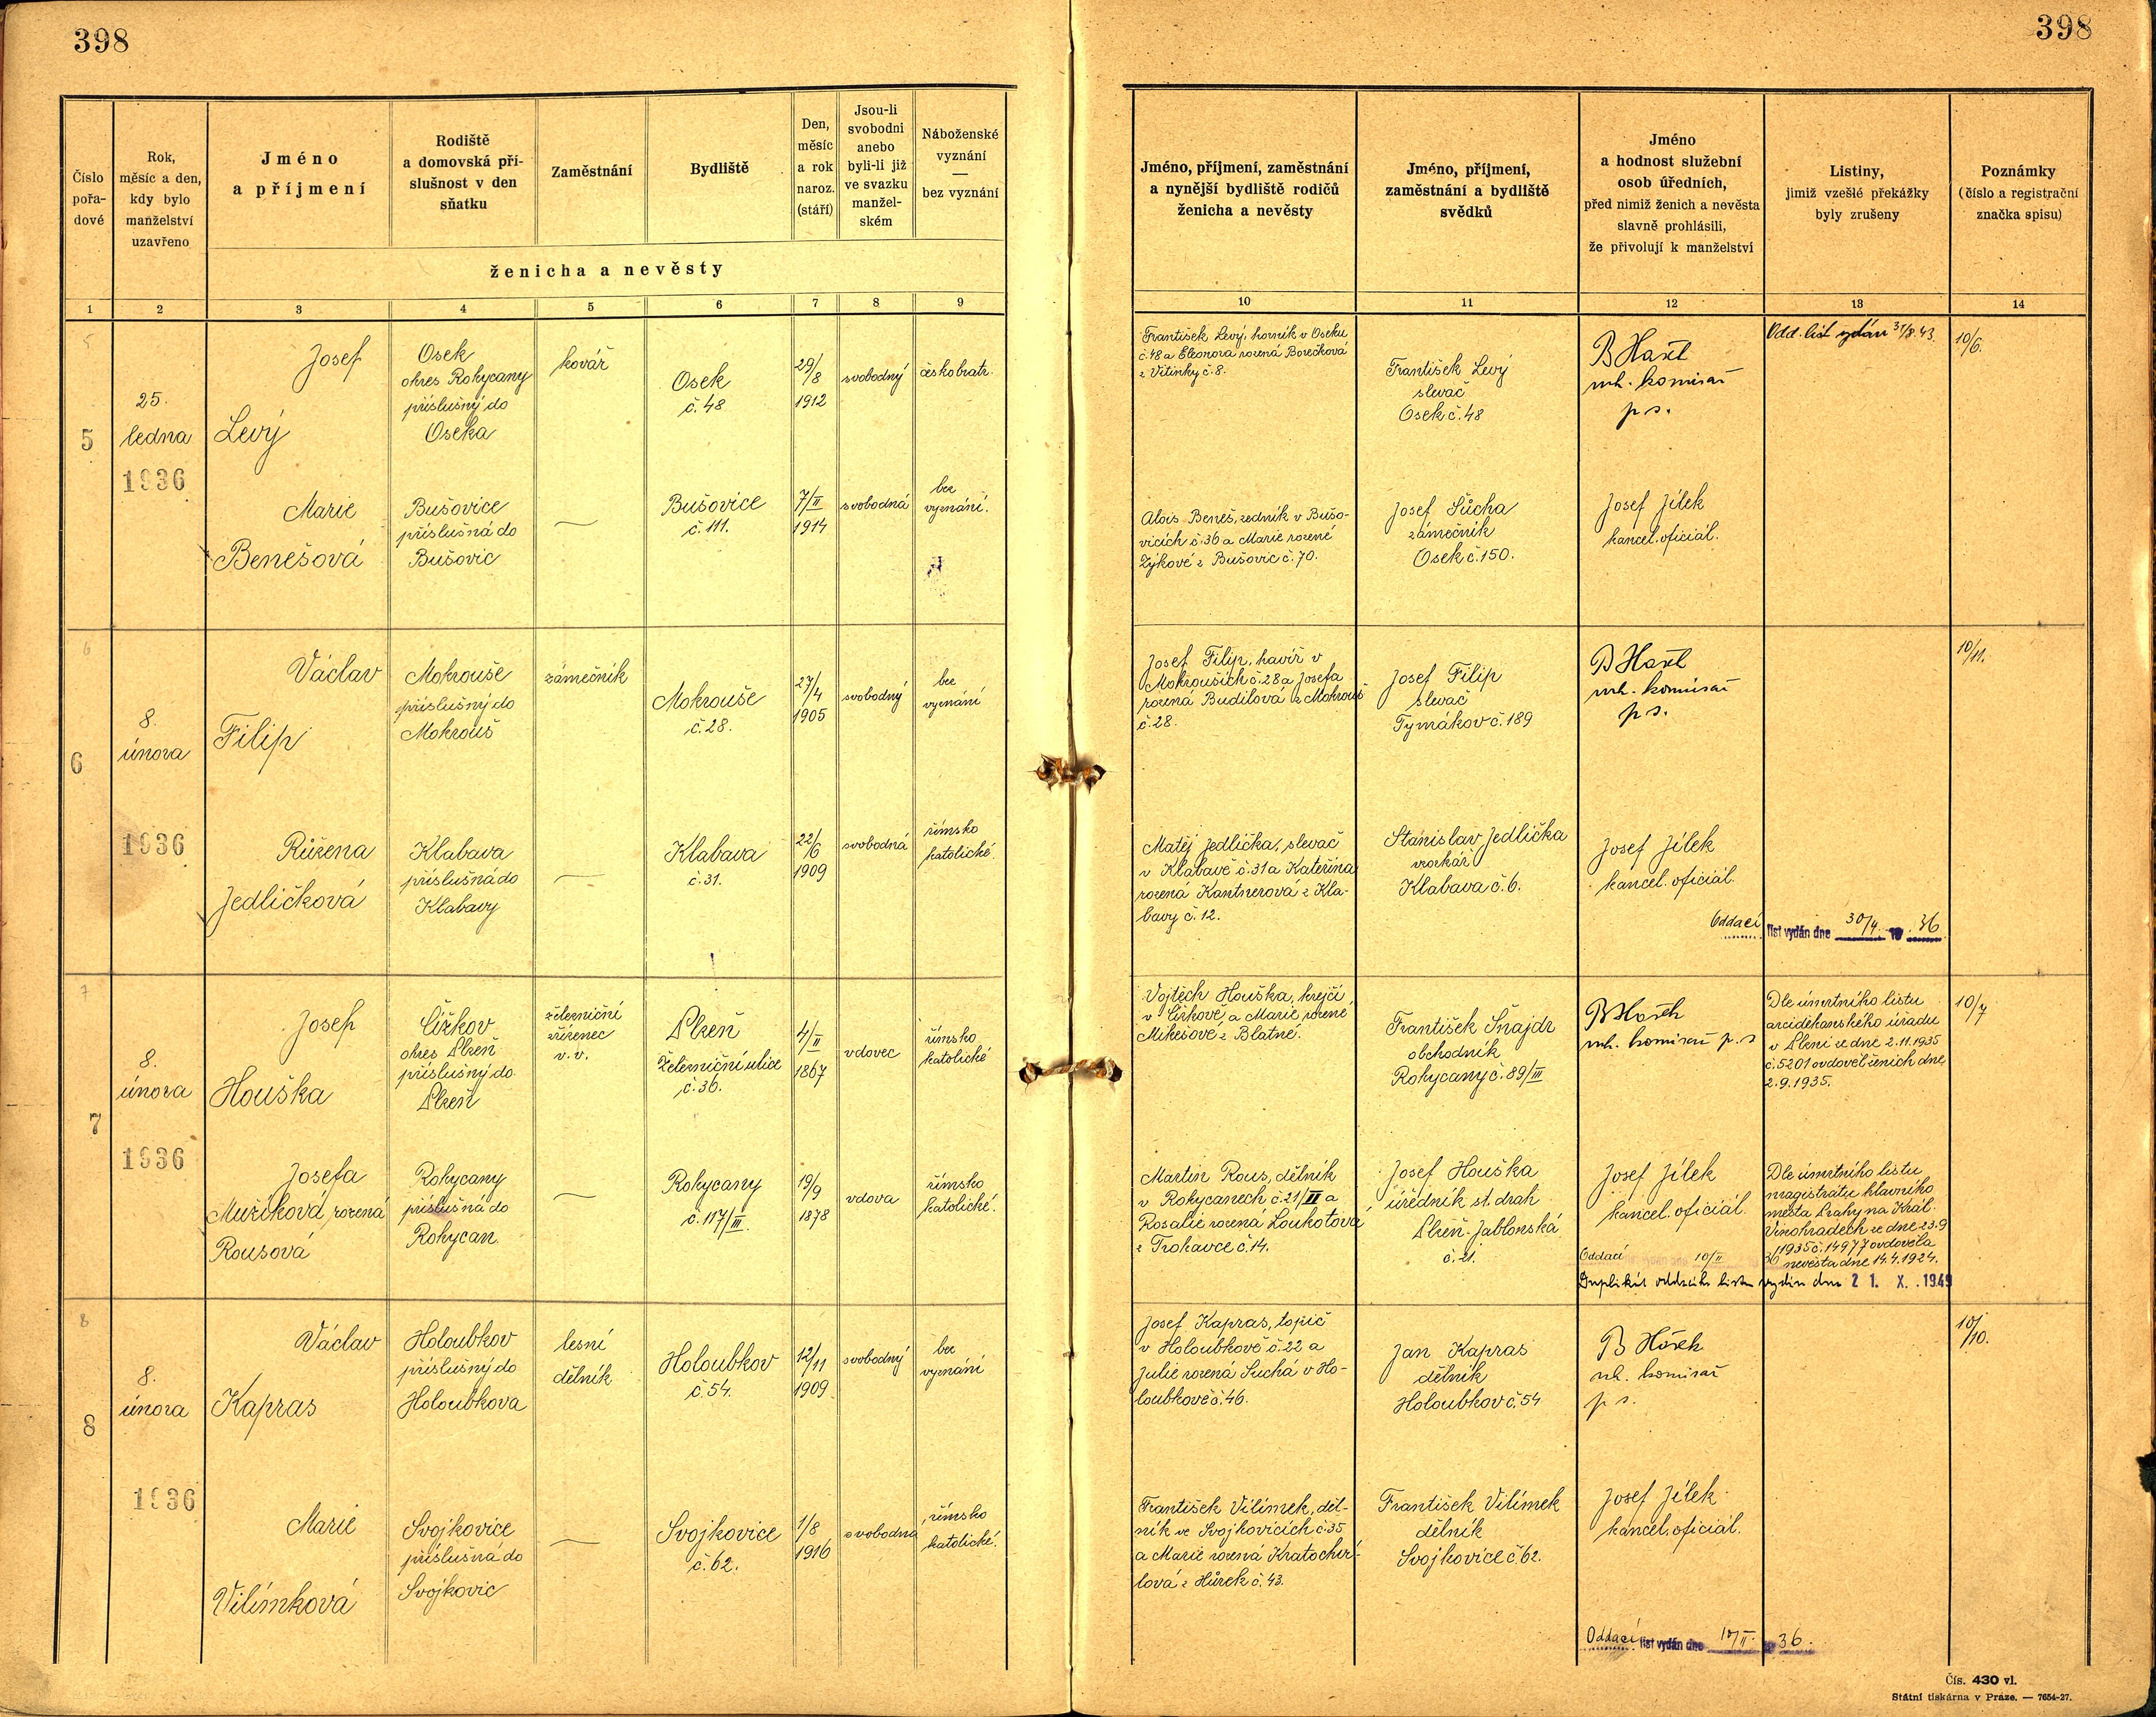 398
398
Číslo
pořa-
dové
Rok,
měsíc a den,
kdy bylo
manželství
uzavřeno
Jméno
a příjmení
Rodiště
a domovská pří-
slušnost v den
sňatku
Zaměstnání
Bydliště
Den,
měsíc
a rok
naroz.
(stáří)
Jsou-li
svobodni
anebo
byli-li již
ve svazku
manžel-
ském
Náboženské
vyznání
—
bez vyznání
ženicha a nevěsty
Jméno, příjmení, zaměstnání
a nynější bydliště rodičů
ženicha a nevěsty
Jméno, příjmení,
zaměstnání a bydliště
svědků
Jméno
a hodnost služební
osob úředních,
před nimiž ženich a nevěsta
slavně prohlásili,
že přivolují k manželství
Listiny,
jimiž vzešlé překážky
byly zrušeny
Poznámky
(číslo a registrační
značka spisu)
1 2 3 4 5 6 7 8 9 10 11 12 13 14
5
5
25.
ledna
1936
Josef
Levý
Osek
okres Rokycany
příslušný do
Oseka
kovář
Osek
č. 48
29/8
1912
svobodný
českobratr.
František Levý, horník v Oseku
č. 48 a Eleonora rozená Borečková
z Vitinky č. 8.
František Levý
slevač
Osek č. 48
komisař
p. s.
Odd. list vydán 31/8. 43.
10/6.
Marie
Benešová
Bušovice
příslušná do
Bušovic
—
Bušovice
č. 111.
7/II
1914
svobodná
bez
vyznání.
Alois Beneš, zedník v Bušo-
vicích č. 36 a Marie rozené
Zýkové z Bušovic č. 70.
Josef Šůcha
zámečník
Osek č. 150.
Josef Jílek
kancel. oficiál.
6
6
8.
února
1936
Václav
Filip
Mokrouše
příslušný do
Mokrouš
zámečník
Mokrouše
č. 28.
27/4
1905
svobodný
bez
vyznání
Josef Filip, havíř v
Mokrouších č. 28 a Josefa
rozená Budilová z Mokrouš
č. 28.
Josef Filip
slevač
Tymákov č. 189
komisař
p. s.
10/11.
Růžena
Jedličková
Klabava
příslušná do
Klabavy
—
Klabava
č. 31.
22/6
1909
svobodná
římsko
katolické.
Matěj Jedlička, slevač
v Klabavě č. 31 a Kateřina
rozená Kantnerová z Kla-
bavy č. 12.
Stanislav Jedlička
vzorkář
Klabava č. 6.
Josef Jílek
kancel. oficiál.
Oddací list vydán dne 30/4. 19 36
7
7
8.
února
1936
Josef
Houška
Čížkov
okres Plzeň
příslušný do
Plzeň
železniční
zřízenec
v. v.
Plzeň
Železniční ulice
č. 36.
4/II
1867
vdovec
římsko
katolické
Vojtěch Houška, krejčí
v Čížkově a Marie rozené
Mikešové z Blatné.
František Šnajdr
obchodník
Rokycany č. 89/III
komisař p. s
Dle úmrtního listu
arciděkanského úřadu
v Plzni ze dne 2.11.1935
č. 5201 ovdověl ženich dne
2.9.1935.
10/7
Josefa
Mužíková rozená
Rousová
Rokycany
příslušná do
Rokycan
—
Rokycany
č. 117/III.
19/9
1878
vdova
římsko
katolické.
Martin Rous, dělník
v Rokycanech č. 21/II a
Rosalie rozená Loukotová
z Trokavce č. 14.
Josef Houška
úředník st. drah
Plzeň-Jablonská
č. 21.
Josef Jílek
kancel. oficiál.
Dle úmrtního listu
magistrátu hlavního
města Prahy na Král.
Vinohradech ze dne 23.9
1935 č. 14977 ovdověla
nevěsta dne 14.4.1924.
Oddací 10/II 36
Duplikát oddacího listu vydán dne 2 1. X. 1949
8
8
8.
února
1936
Václav
Kapras
Holoubkov
příslušný do
Holoubkova
lesní
dělník
Holoubkov
č. 54.
12/11
1909
svobodný
bez
vyznání
Josef Kapras, topič
v Holoubkově č. 22 a
Julie rozená Suchá v Ho-
loubkově č. 46.
Jan Kapras
dělník
Holoubkov č. 54
komisař
p. s.
10/10.
Marie
Vilímková
Svojkovice
příslušná do
Svojkovic
—
Svojkovice
č. 62.
1/8
1916
svobodná
římsko
katolické.
František Vilímek, děl-
ník ve Svojkovicích č. 35
a Marie rozená Kratochví-
lová z Hůrek č. 43.
František Vilímek
dělník
Svojkovice č. 62.
Josef Jílek
kancel. oficiál.
Oddací list vydán dne 10/II. 36.
Čís. 430 vl.
Státní tiskárna v Praze. — 7654-27.